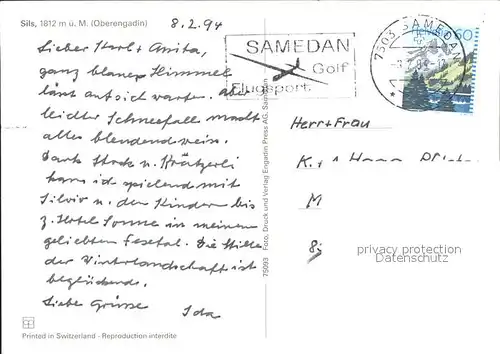 Sils, 1812 m ü. M. (Oberengadin)
8.2.94
Lieber Karl + Anita,
ganz blauer Himmel
lässt auf sich warten. Aber
leichter Schneefall macht
alles blendend weiss.
Dank Stock u. Krätzerli
kann ich spielend mit
Silvio u. den Kindern bis
z. Hotel Sonne in meinem
geliebten Fextal. Die Stille
der Winterlandschaft ist
beglückend.
Liebe Grüsse
Ida
Printed in Switzerland - Reproduction interdite
75093 Foto, Druck und Verlag Engadin Press AG, Samedan
SAMEDAN
Golf
Flugsport
7503 SAMEDAN
HELVETIA 60
Herr + Frau
M
8
privacy protection
Datenschutz